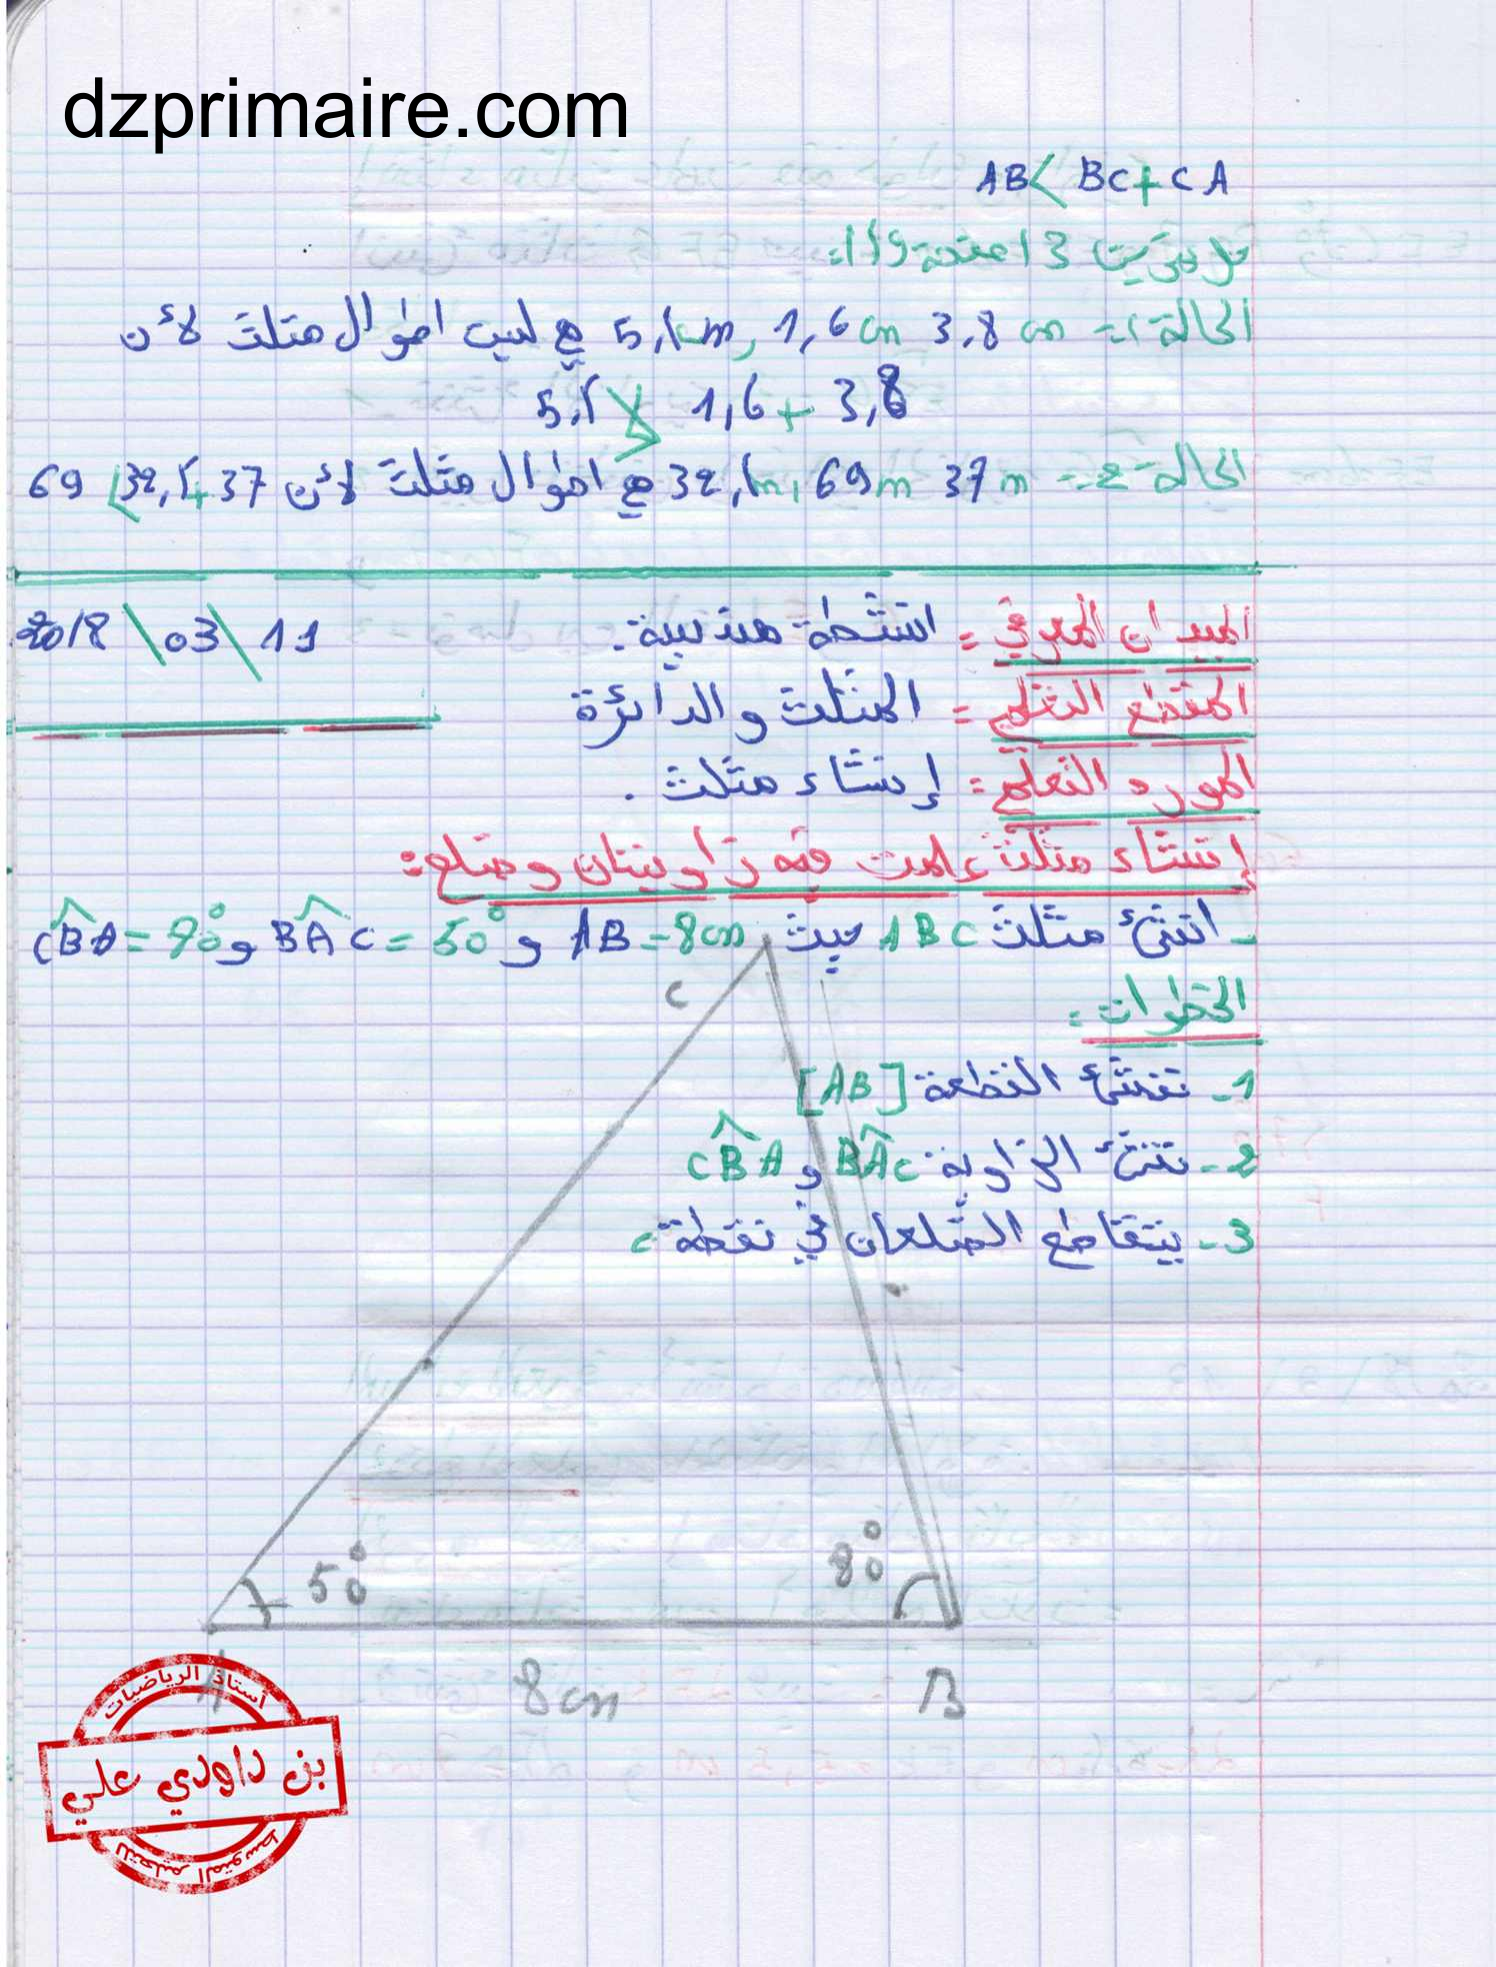 dzprimaire.com
AB < BC + CA
3
الحالة 1 = 3,8 cm 1,6 cm, 5,1 cm هي ليب اطوال مثلث لأن
5,1 1,6 + 3,8
الحالة 2 = 37 m 69 m, 32,1 m هي اطوال مثلث لأن 37 + 32,1 > 69
الميدان المعرفي = انشطة هندسية.
11 \ 03 \ 2018
المقطع التعلمي = المثلث والدائرة
المورد التعلمي = إنشاء مثلث.
إنشاء مثلث علمت فيه زاويتان وضلع:
- انشئ مثلث ABC حيث AB = 8cm و BAC = 50° و CBA = 90°
الخطوات =
1 - ننشئ القطعة [AB]
2 - ننشئ الزاوية BAC و CBA
3 - يتقاطع الضلعان في نقطة c
C
50°
80°
A
8 cm
B
أستاذ الرياضيات
بن داودي علي
للتعليم المتوسط